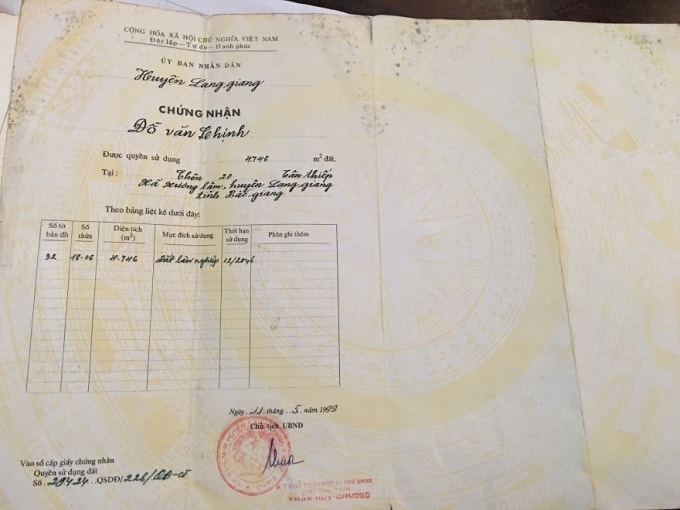 CỘNG HÒA XÃ HỘI CHỦ NGHĨA VIỆT NAM
Độc lập — Tự do — Hạnh phúc
ỦY BAN NHÂN DÂN
Huyện Lạng giang
CHỨNG NHẬN
Đỗ văn Chịnh
Được quyền sử dụng 4.746 m² đất.
Tại : Thôn 20 Tân thiếp
Xã Hương lâm, huyện Lạng giang
tỉnh Bắc giang
Theo bảng liệt kê dưới đây:
Số tờ bản đồ Số thửa Diện tích (m²) Mục đích sử dụng Thời hạn sử dụng Phần ghi thêm
32 18-06 4.746 đất lâm nghiệp 12/2046
Ngày 11 tháng 5 năm 1999
Chủ tịch UBND
Vào sổ cấp giấy chứng nhận
Quyền sử dụng đất
Số 29424 QSDĐ/226/QĐ-CT